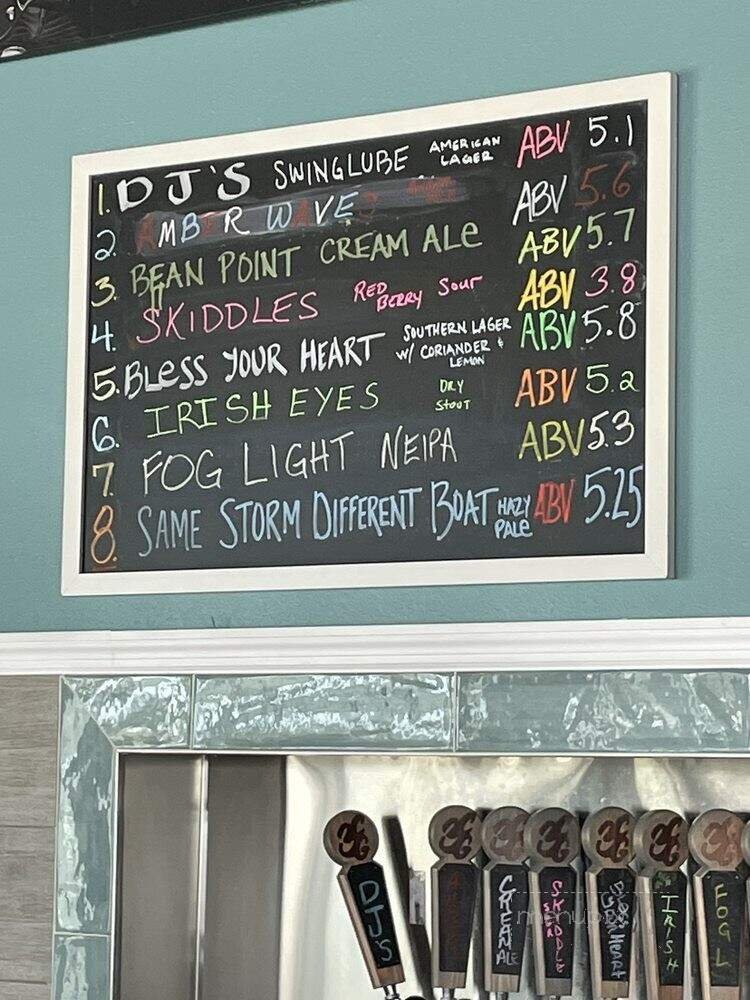 1. DJ'S SWINGLUBE AMERICAN LAGER ABV 5.1
2. AMBER WAVES ABV 5.6
3. BEAN POINT CREAM ALE ABV 5.7
4. SKIDDLES RED BERRY SOUR ABV 3.8
5. BLESS YOUR HEART SOUTHERN LAGER W/ CORIANDER & LEMON ABV 5.8
6. IRISH EYES DRY STOUT ABV 5.2
7. FOG LIGHT NEIPA ABV 5.3
8. SAME STORM DIFFERENT BOAT HAZY PALE ABV 5.25
DJ'S
CREAM ALE
SKIDDLE
BLESS UR HEART
IRISH
FOG L
menupix